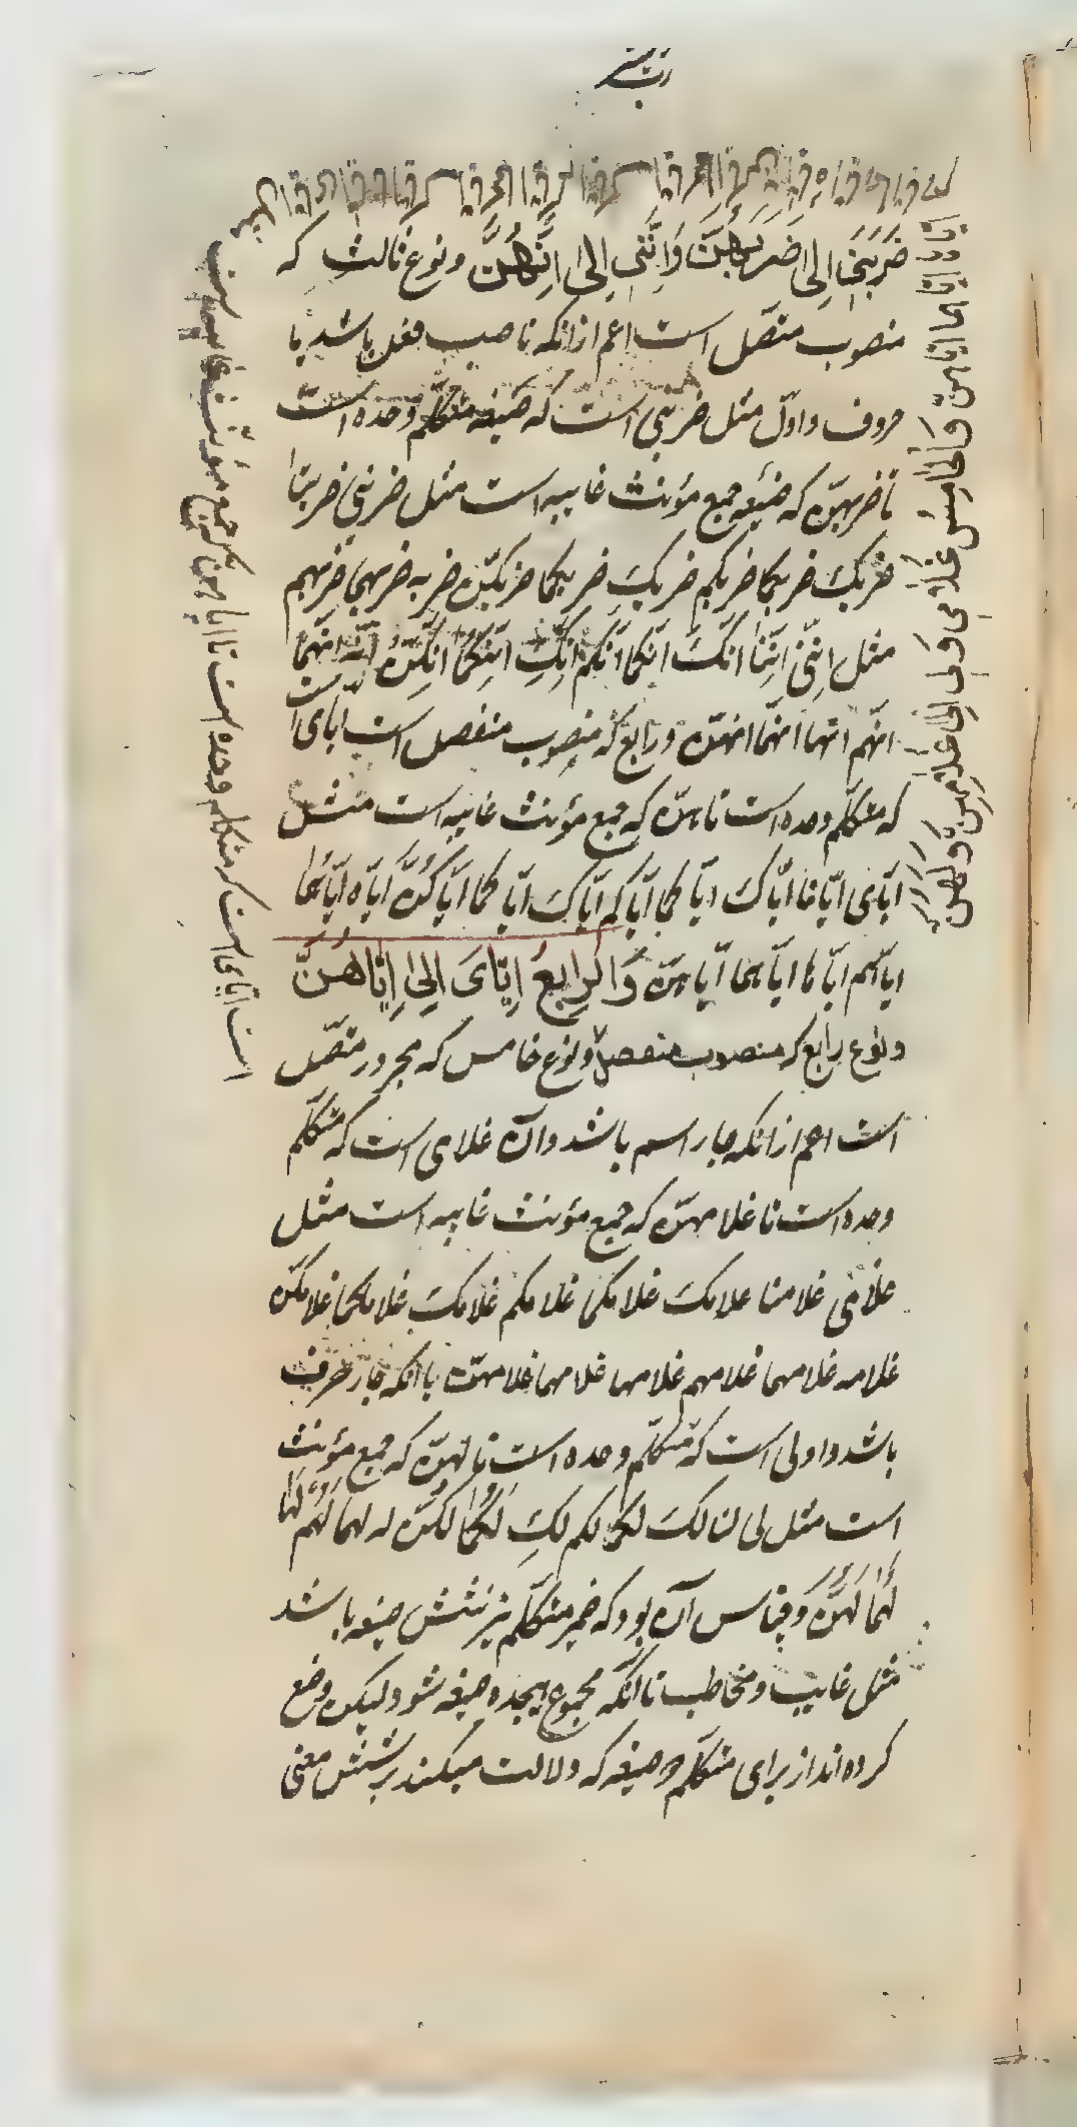 ضَرَبَنِی اِلی ضَرَبَهُنَّ وَاِنَّنِی اِلی اِنَّهُنَّ ونوع ثالث که
منصوب متصل است اعم ازانکه ناصب فعل باشد یا
حروف واول مثل ضربنی است که صیغه متکلم وحده است
تا ضربهن که صیغه جمع مؤنث غایبه است مثل ضربنی ضربنا
ضربک ضربکما ضربکم ضربکِ ضربکما ضربکن ضربه ضربهما ضربهم
مثل اننی اننا انکَ انکما انکم انکِ انکما انکن انه انهما
انهم انها انهما انهن ورابع که منصوب منفصل است ایای است
که متکلم وحده است تا هن که جمع مؤنث غایبه است مثل
ایای ایانا ایاکَ ایاکما ایاکم ایاکِ ایاکما ایاکنَّ ایاه ایاهما
ایاهم ایاها ایاهما ایاهن وَالرابِعُ اِیّایَ اِلیٰ اِیّاهُنَّ
ونوع رابع که منصوب منفصل ونوع خامس که مجرور متصل
است اعم ازانکه جار اسم باشد وآن غلامی است که متکلم
وحده است تا غلامهن که جمع مؤنث غایبه است مثل
غلامی غلامنا غلامکَ غلامکما غلامکم غلامکِ غلامکما غلامکن
غلامه غلامهما غلامهم غلامها غلامهما غلامهن یا انکه جار حرف
باشد واولی است که متکلم وحده است تا لهن که جمع مؤنث
است مثل لی لنا لکَ لکما لکم لکِ لکما لکن له لهما لهم لها
لهما لهن وقیاس آن بود که ضمیر متکلم نیز شش صیغه باشد
مثل غایب ومخاطب تا انکه مجموع هیجده صیغه شود لیکن وضع
کرده اند از برای متکلم دو صیغه که دلالت میکند بر شش معنی
وَالخامِسُ غُلامِی وَلِی اِلی غلامِهِنَّ وَلَهُنَّ
است ایای است که متکلم وحده است تا ایاهن که جمع مؤنث غایبه است